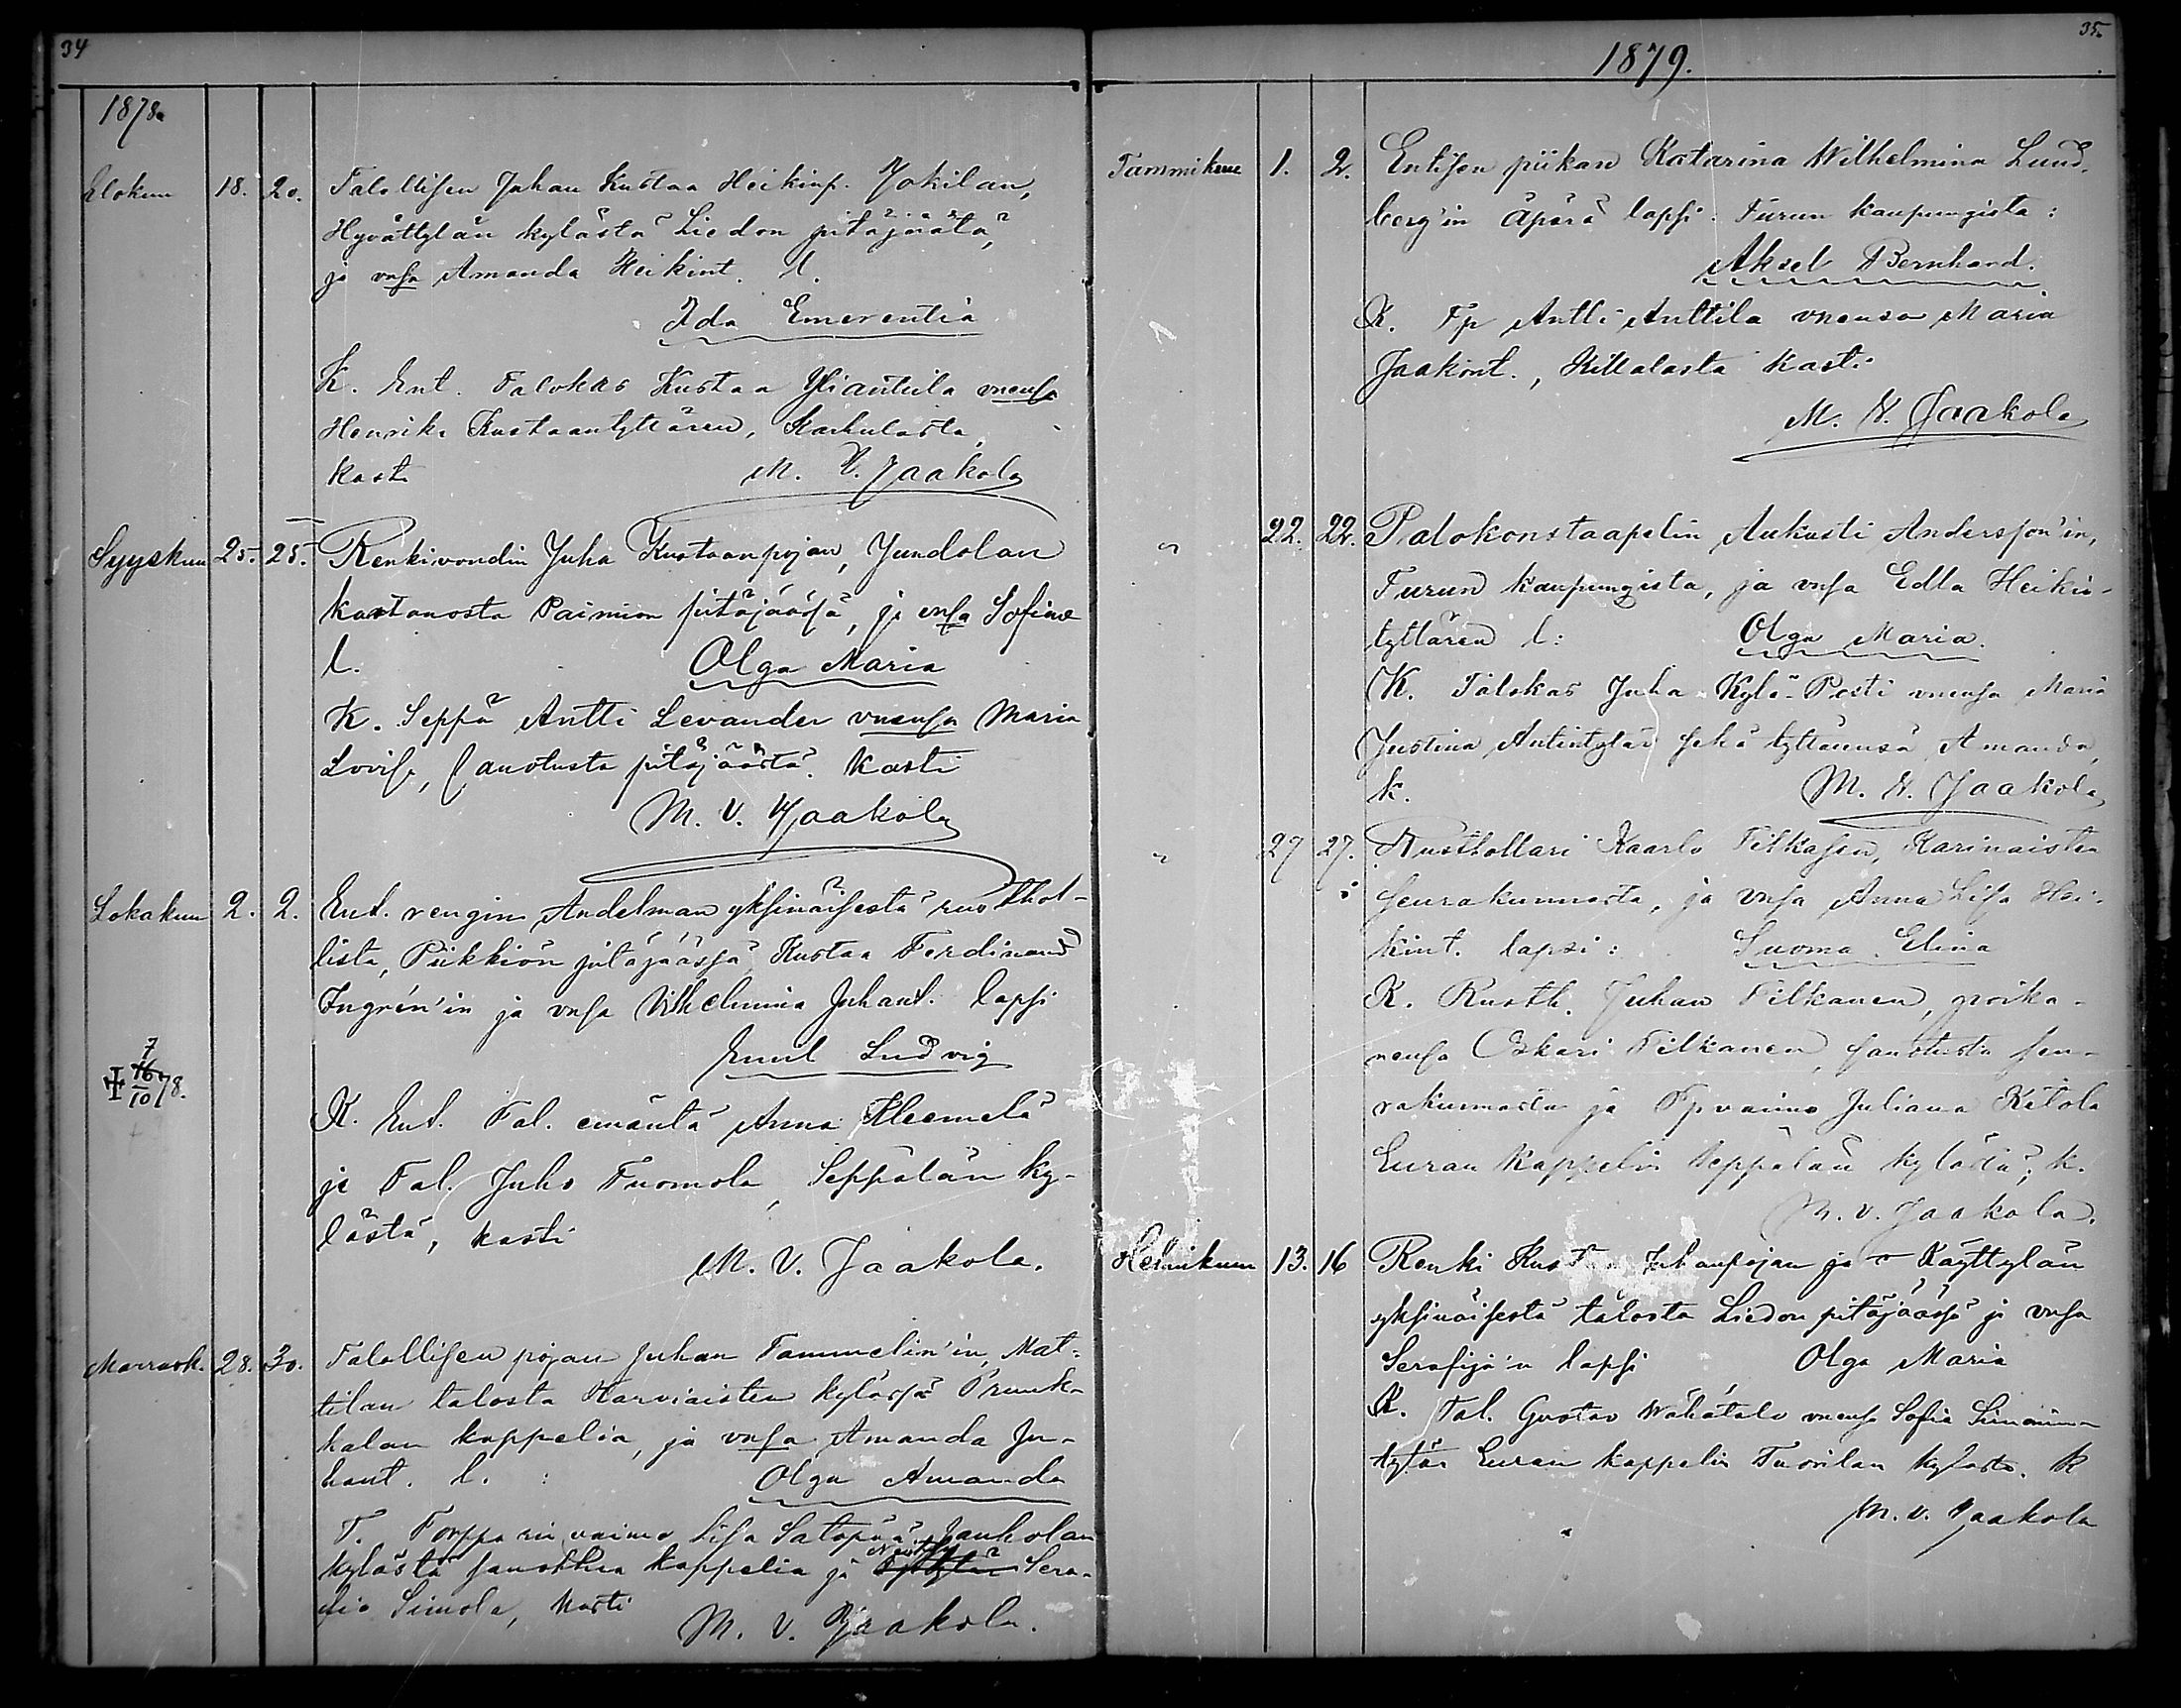 34
1878.
Elokuu 18. 20. Talollisen Johan Kustaa Heikinp. Jokilan,
Hyvättylän kylästä Liedon pitäjäätä,
ja vnsa Amanda Heikint. l.
Ida Emerentia
K. Ent. Talokas Kustaa Yliantila vneusa
Henrika Kustaantyttären, Karhulasta,
kasti M. V. Jaakola
Syyskuu 25. 25. Renkivoudin Juha Kustaanpojan, Jundolan
kartanosta Paimion pitäjäässä, ja vnsa Sofian
l. Olga Maria
K. Seppä Antti Levander vneusa Maria
Lovisa, sanotusta pitäjäästä. Kasti
M. V. Jaakola
Lokakuu 2. 2. Ent. rengin Andelman yksinäisestä rustthol-
lista, Piikkiön pitäjäässä, Kustaa Ferdinand
Ingrén'in ja vnsa Vilhelmina Juhant. lapsi
Emil Ludvig
7
16
10 78.
K. Ent. Tal. emäntä Anna Kleemelä
ja Tal. Juho Tuomola, Seppälän ky-
lästä, kasti
M. V. Jaakola.
Marrask. 28. 30. Talollisen pojan Juhan Tammelin'in, Mat-
tilan talosta Karviaisten kylässä Prunk-
kalan kappelia, ja vnsa Amanda Ju-
hant. l. : Olga Amanda
T. Torppari vaimo Lisa Satopää Jauholan
kylästä sanottua kappelia ja Sera-
fia Simola, kasti
M. V. Jaakola.
35.
1879.
Tammikuu 1. 2. Entisen piikan Katarina Wilhelmina Lund-
berg'in äpärä lapsi. Turun kaupungista:
Aksel Bernhard.
K. Tp Antti Anttila vneusa Maria
Jaakint., Killalasta kasti
M. V. Jaakola
" 22. 22. Palokonstaapelin Aukusti Andersson'in,
Turun kaupungista, ja vnsa Edla Heikin-
tyttären l: Olga Maria.
K. Talokas Juha Kylä-Pesti vneusa Maria
Justina Antintytär sekä tyttäreusä Amanda,
k. M. V. Jaakola
" 27 27. Rusthollari Kaarlo Tilkasen, Karinaisten
seurakunnasta, ja vnsa Anna Lisa Hei-
kint. lapsi: Suoma Elina
K. Rusth. Juhan Tilkanen, poika-
neusa Oskari Tilkanen, sanotusta seu-
rakunnasta ja Tp vaimo Juliana Kitola
Euran kappelin Seppälän kylästä, k.
M. V. Jaakola.
Helmikuu 13. 16 Renki Kust Juhanpojan ja Käyttylän
yksinäisestä talosta Liedon pitäjäässä ja vnsa
Serafija'n lapsi Olga Maria
K. Tal. Gustav Wähätalo vneusa Sofia Simonin-
tytär Euran kappelin Tuorilan kylästä. k
M. V. Jaakola